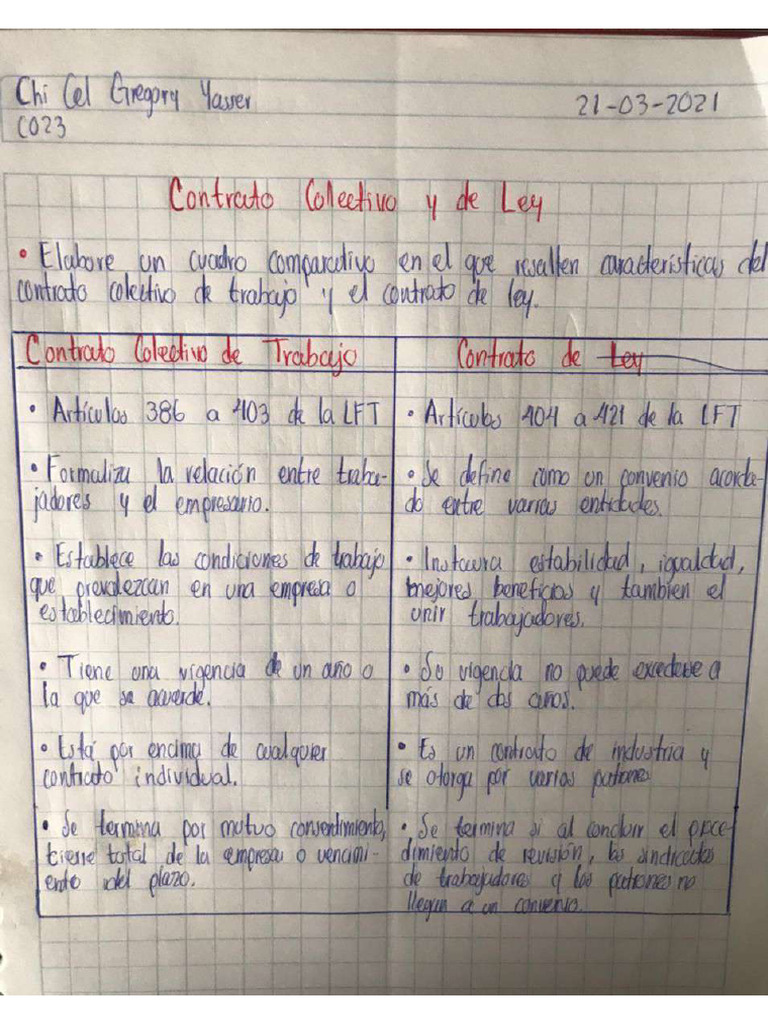 Chi Cel Gregory Yasser
21-03-2021
C023
Contrato Colectivo y de Ley
• Elabore un cuadro comparativo en el que resalten características del
contrato colectivo de trabajo y el contrato de ley.
Contrato Colectivo de Trabajo
• Artículos 386 a 403 de la LFT
• Formaliza la relación entre traba-
jadores y el empresario.
• Establece las condiciones de trabajo
que prevalezcan en una empresa o
establecimiento.
• Tiene una vigencia de un año o
la que se acuerde.
• Está por encima de cualquier
contrato individual.
• Se termina por mutuo consentimiento,
cierre total de la empresa o vencimi-
ento del plazo.
Contrato de Ley
• Artículos 404 a 421 de la LFT
• Se define como un convenio acorda-
do entre varias entidades.
• Instaura estabilidad, igualdad,
mejores beneficios y tambien el
unir trabajadores.
• Su vigencia no puede excederse a
más de dos años.
• Es un contrato de industria y
se otorga por varios patrones
• Se termina si al concluir el proce-
dimiento de revisión, los sindicatos
de trabajadores y los patrones no
llegan a un convenio.